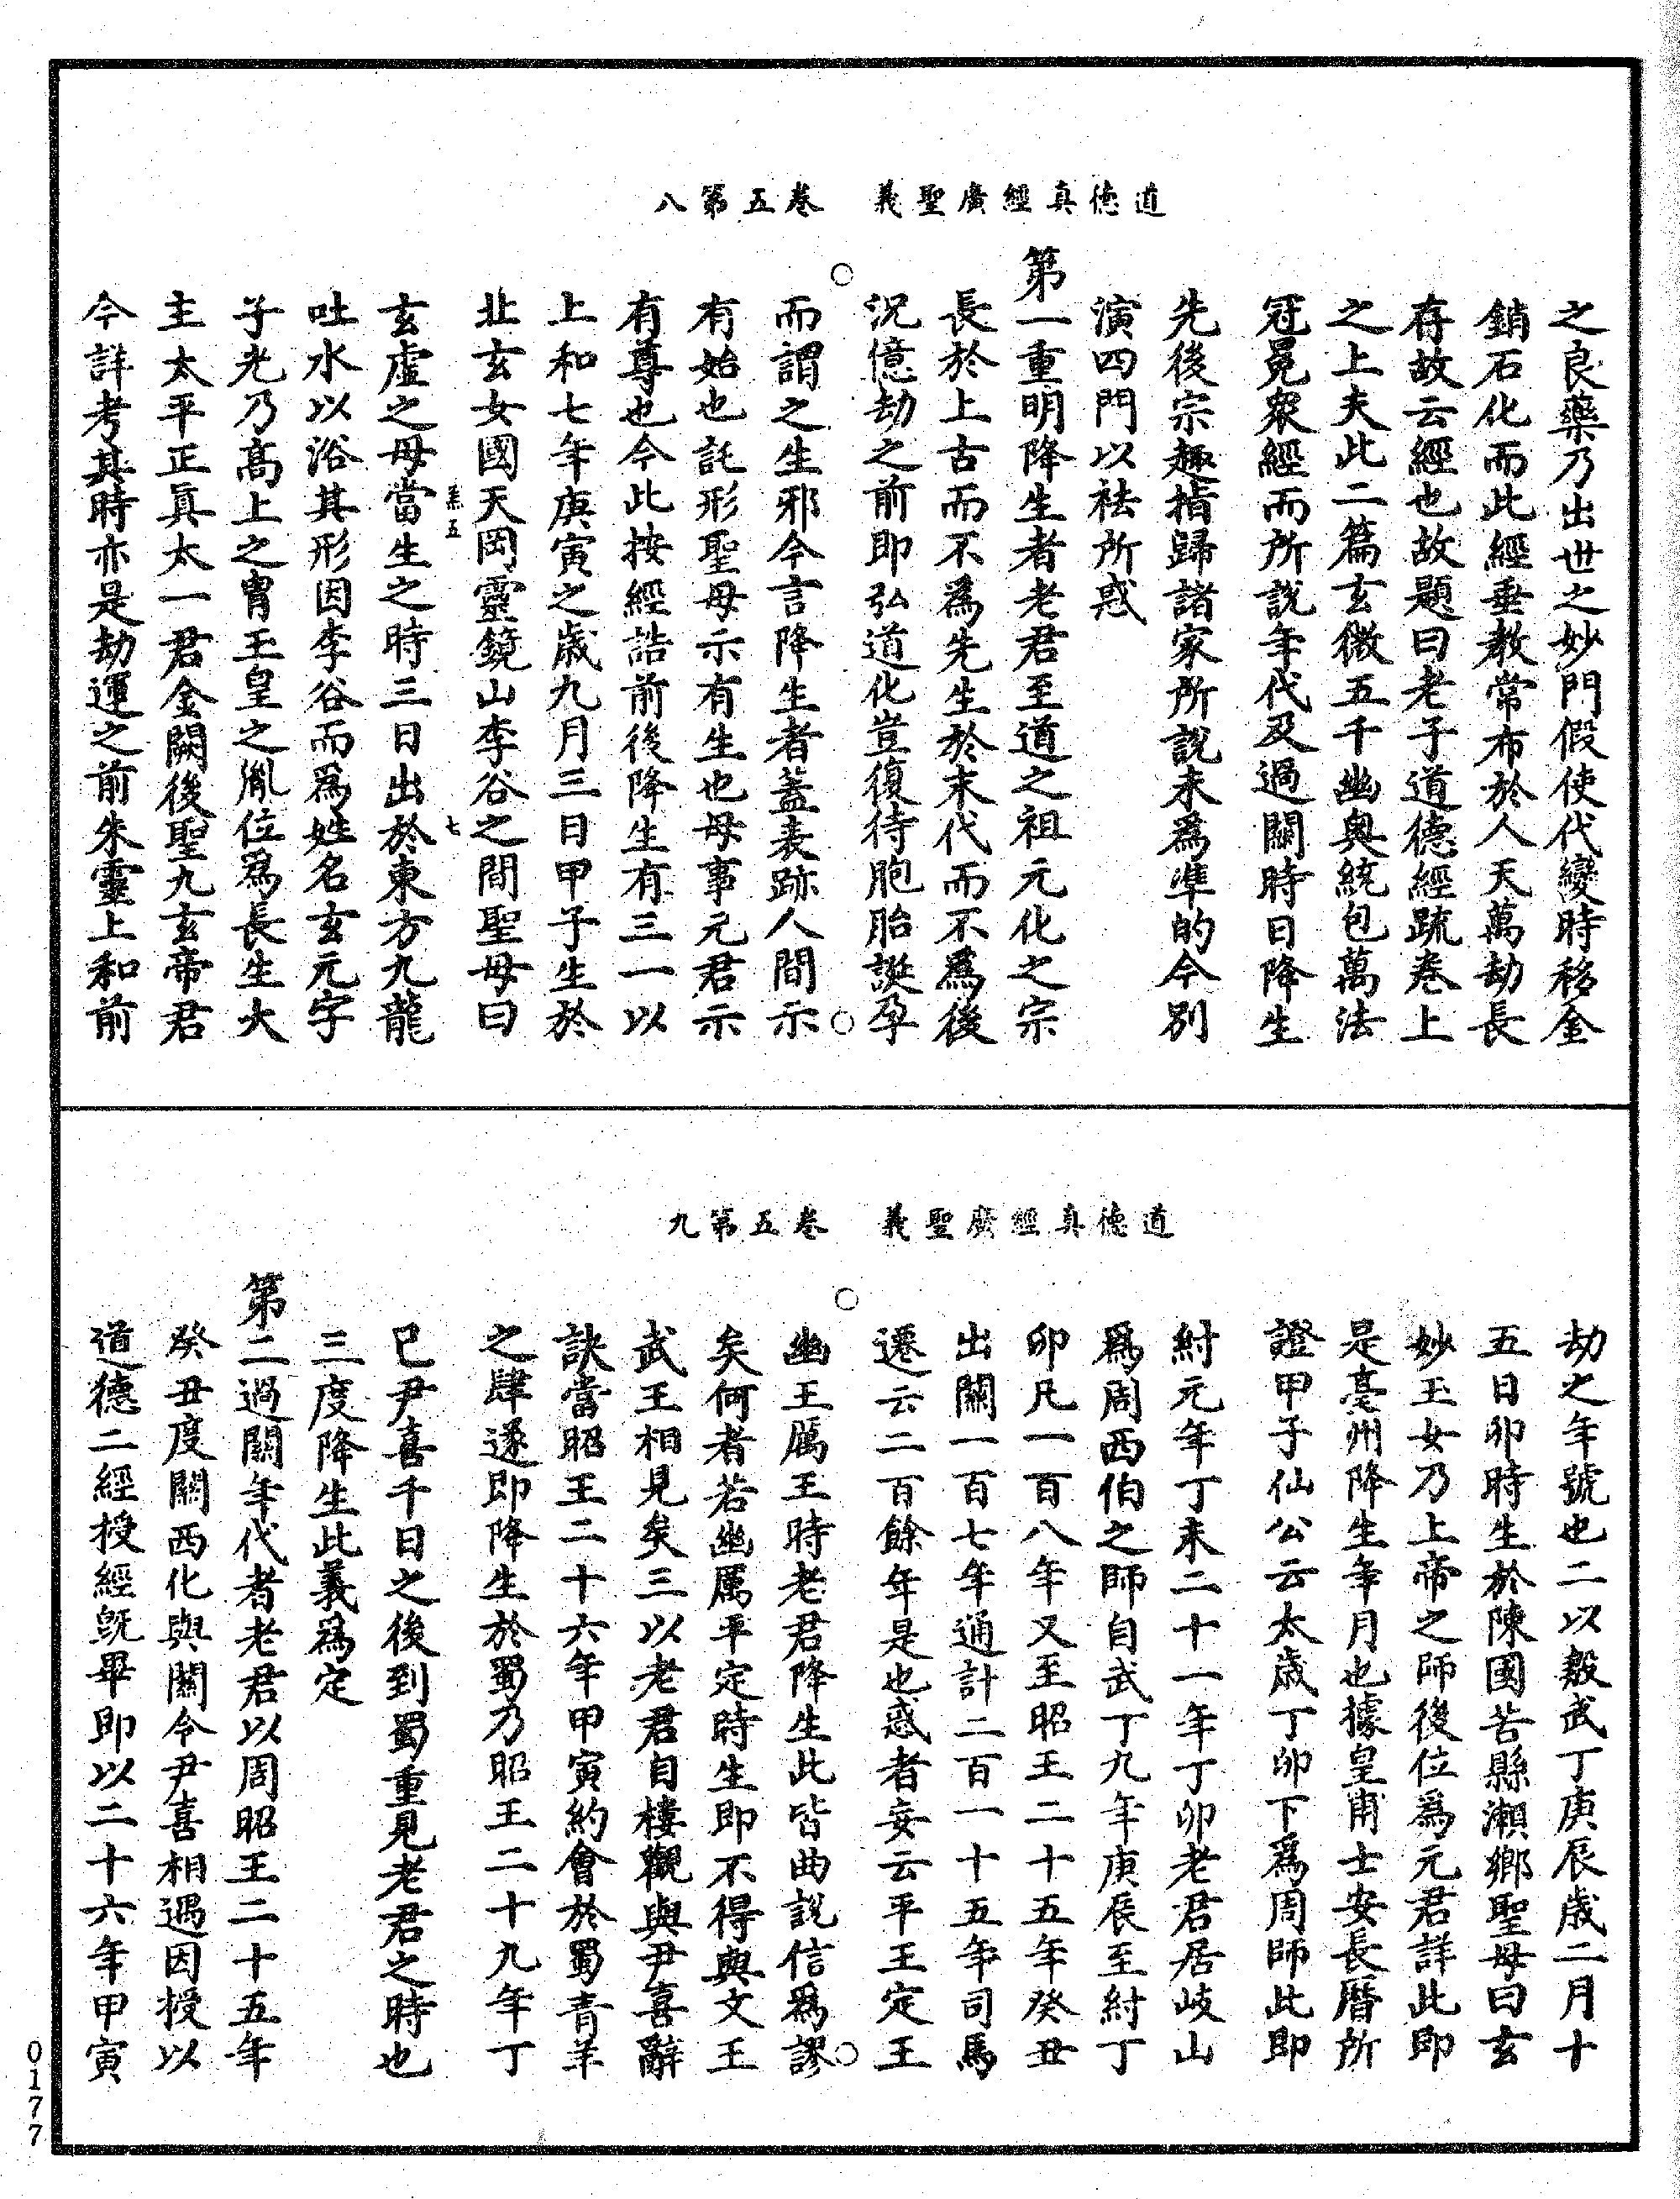 道德真經廣聖義　卷五第八
之良藥乃出世之妙門假使代變時移金
銷石化而此經垂教常布於人天萬劫長
存故云經也故題曰老子道德經疏卷上
之上夫此二篇玄微五千幽奧統包萬法
冠冕衆經而所說年代及過關時日降生
先後宗趣指歸諸家所說未爲準的今別
演四門以祛所惑
第一重明降生者老君至道之祖元化之宗
長於上古而不爲先生於末代而不爲後
況億劫之前即弘道化豈復待胞胎誕孕
而謂之生邪今言降生者蓋表跡人間示
有始也託形聖母示有生也母事元君示
有尊也今此按經誥前後降生有三一以
上和七年庚寅之歲九月三日甲子生於
北玄女國天岡靈鏡山李谷之間聖母曰
玄虛之母當生之時三日出於東方九龍
吐水以浴其形因李谷而爲姓名玄元字
子光乃高上之胄玉皇之胤位爲長生大
主太平正眞太一君金闕後聖九玄帝君
今詳考其時亦是劫運之前朱靈上和前
道德真經廣聖義　卷五第九
劫之年號也二以殷武丁庚辰歲二月十
五日卯時生於陳國苦縣瀨鄉聖母曰玄
妙玉女乃上帝之師後位爲元君詳此即
是亳州降生年月也據皇甫士安長曆所
證甲子仙公云太歲丁卯下爲周師此即
紂元年丁未二十一年丁卯老君居岐山
爲周西伯之師自武丁九年庚辰至紂丁
卯凡一百八年又至昭王二十五年癸丑
出關一百七年通計二百一十五年司馬
遷云二百餘年是也惑者妄云平王定王
幽王厲王時老君降生此皆曲說信爲謬
矣何者若幽厲平定時生即不得與文王
武王相見矣三以老君自樓觀與尹喜辭
訣當昭王二十六年甲寅約會於蜀青羊
之肆遂即降生於蜀乃昭王二十九年丁
巳尹喜千日之後到蜀重見老君之時也
三度降生此義爲定
第二過關年代者老君以周昭王二十五年
癸丑度關西化與關令尹喜相遇因授以
道德二經授經既畢即以二十六年甲寅
0177